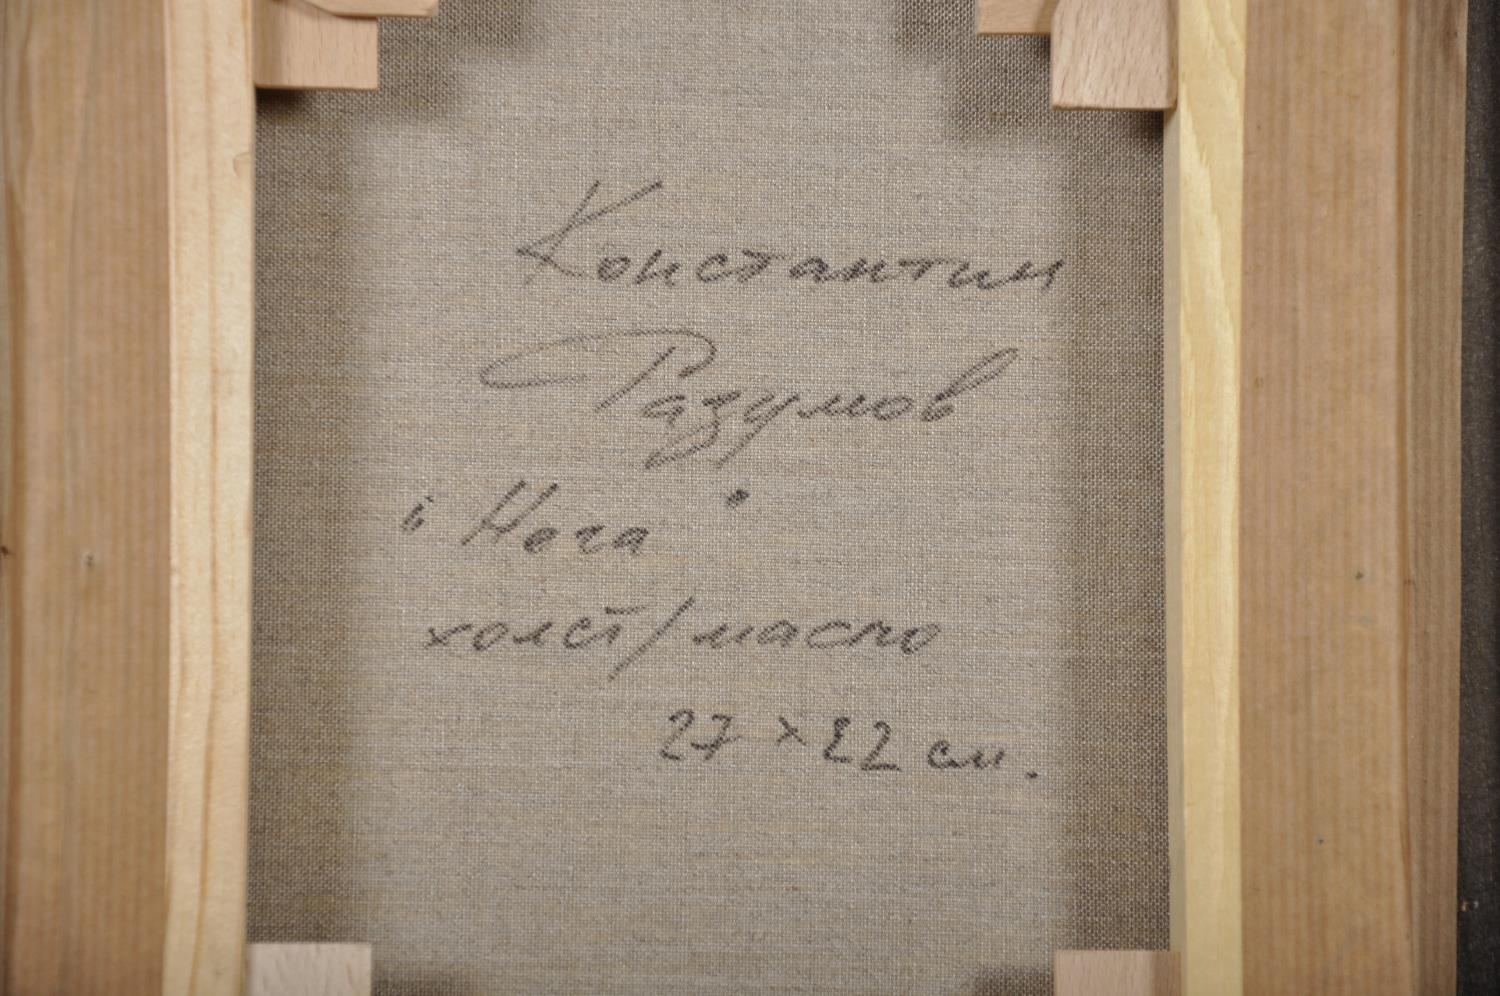 Константин
Разумов
"Нога"
холст/масло
27 x 22 см.